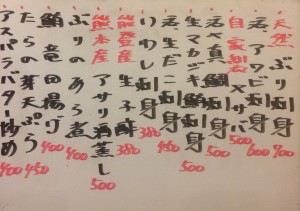 天然ぶり刺身 700
活アワビ刺身 600
自家製〆サバ 500
活〆真鯛刺身 500
活生だこ刺身 450
生カマジキ刺身 500
いわし刺身 380
能登産生子酢 380
熊本産アサリ酒蒸し 500
ぶりのあら煮 400
鮪竜田揚げ 400
たらの芽天ぷら 450
アスパラバター炒め 400